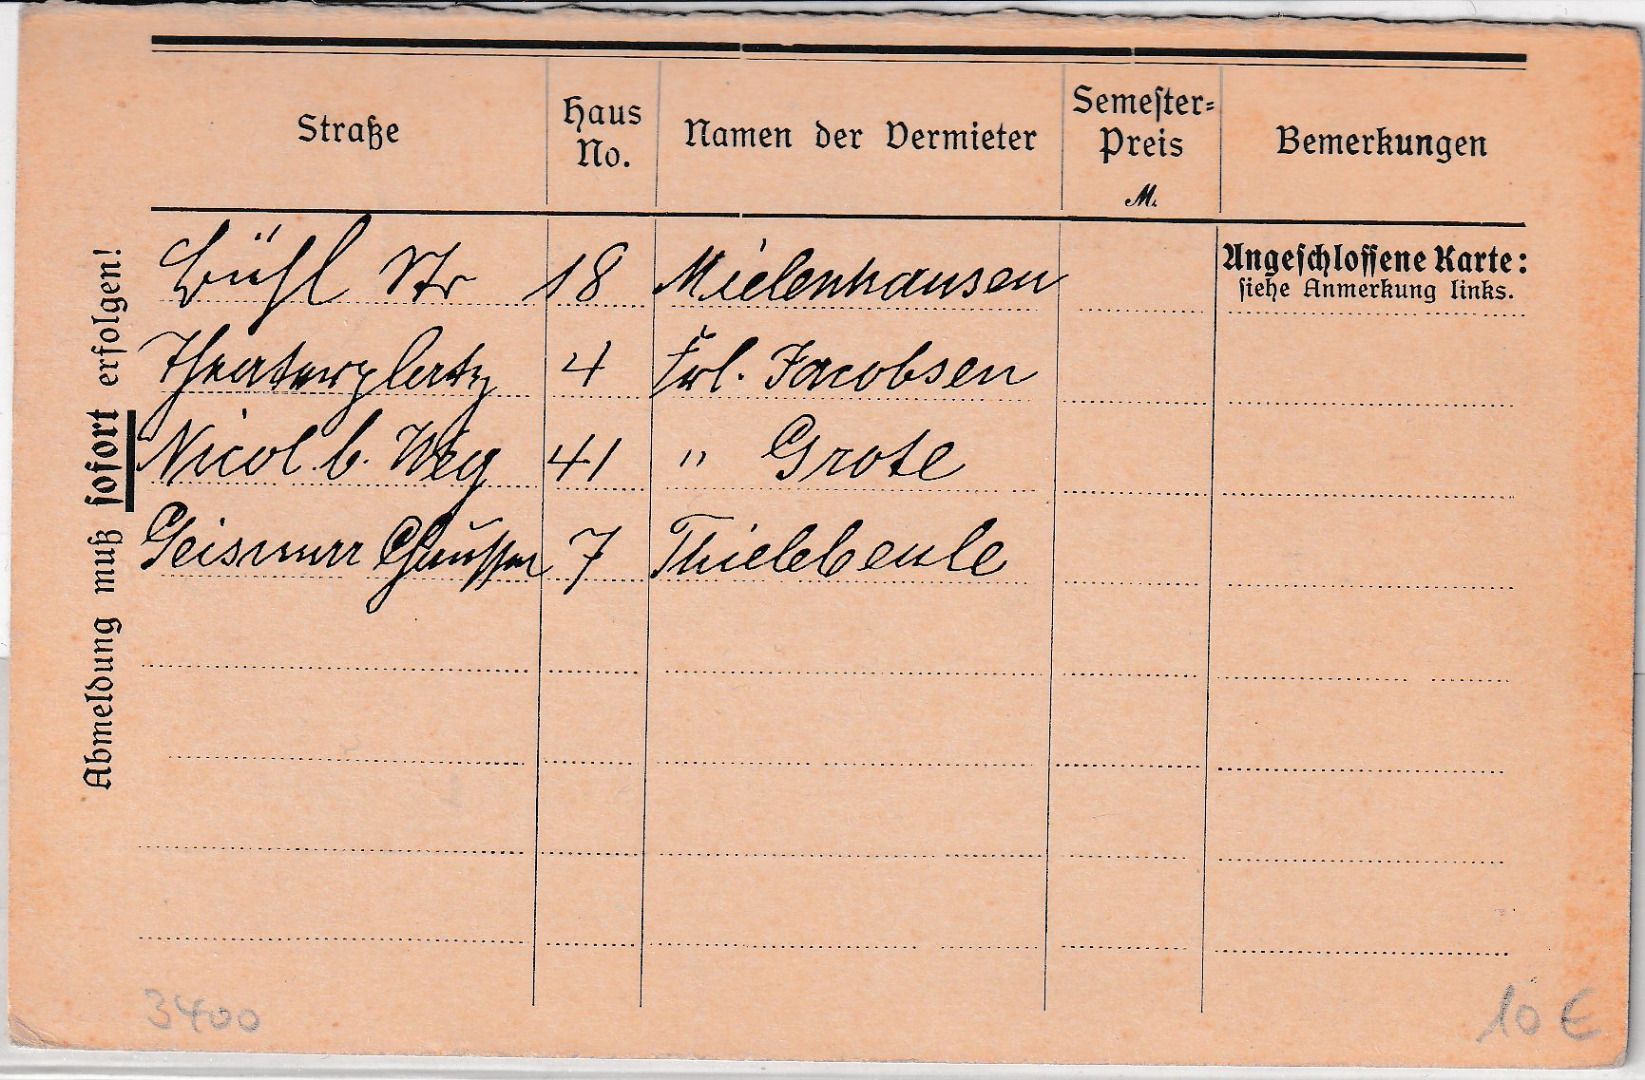 Straße Haus No. Namen der Vermieter Semester-Preis M. Bemerkungen
Abmeldung muß sofort erfolgen!
Angeschlossene Karte:
siehe Anmerkung links.
Bühl Str 18 Mielenhausen
Theaterplatz 4 Frl. Jacobsen
Nicol.b. Weg 41 " Grote
Geismar Chaussee 7 Thielebeule
3400
10 €